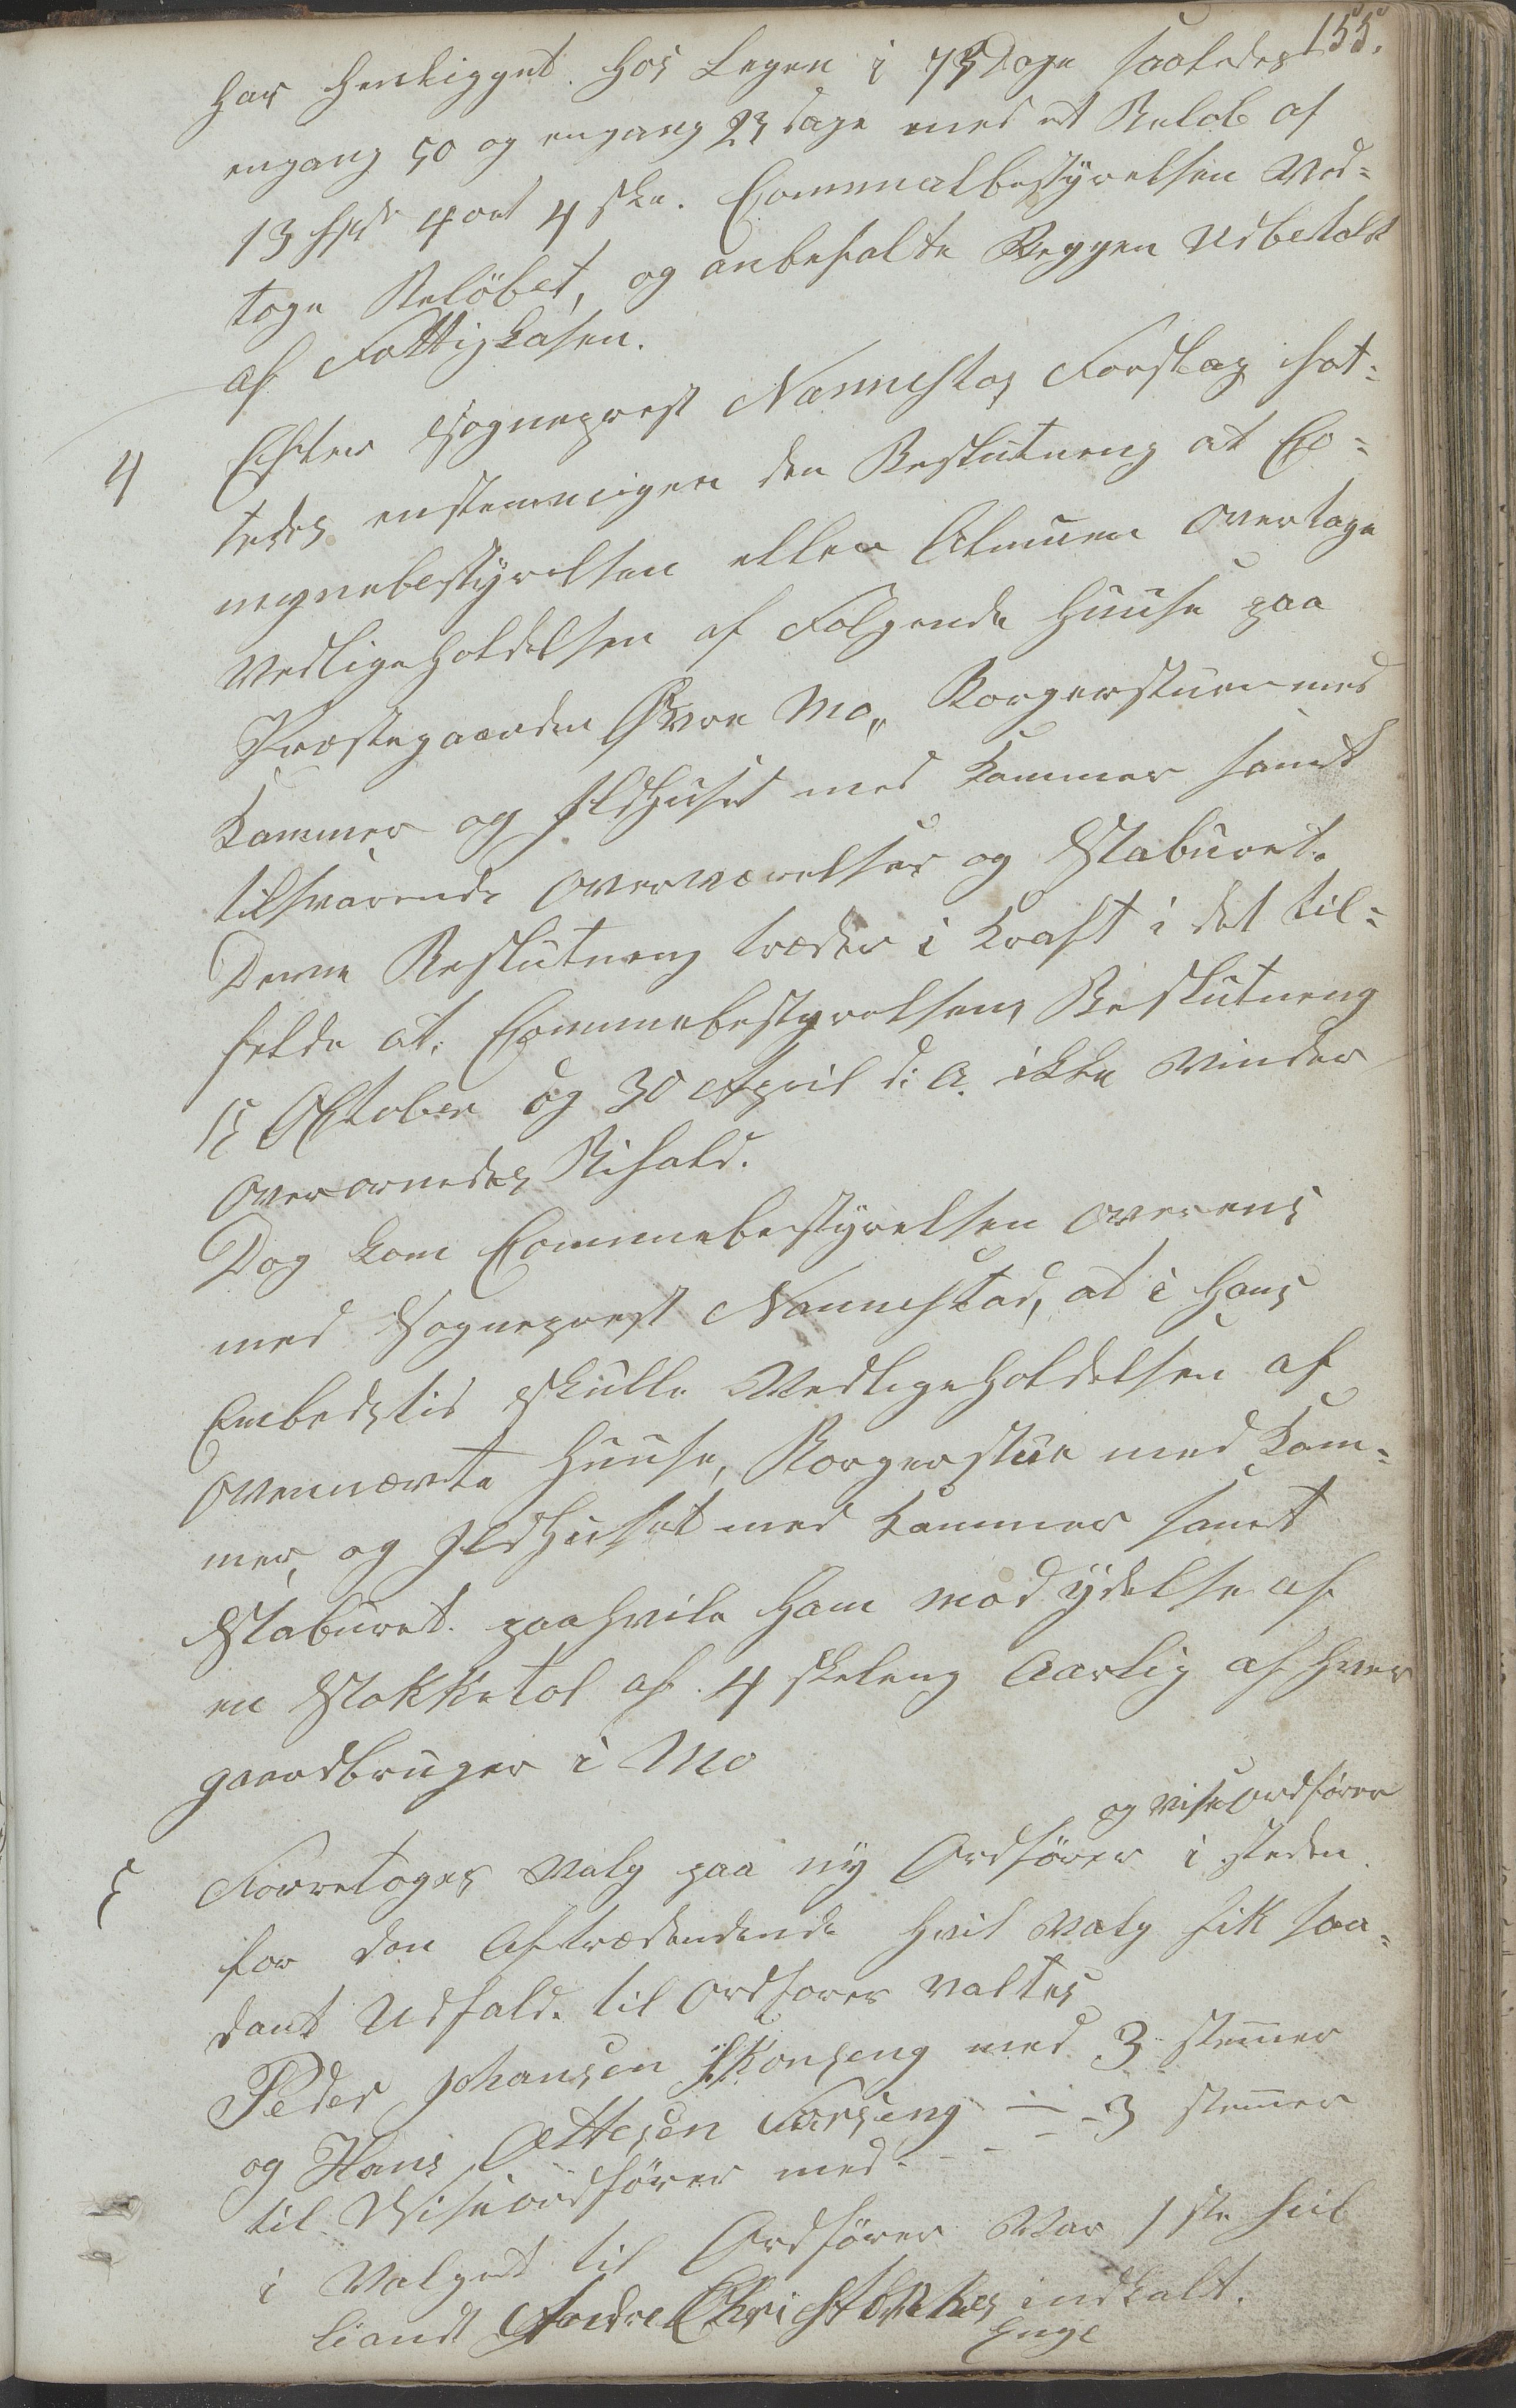 155.
har henligget hos Legen i 73 Dage saaledes
engang 50 og engang 23 dage med et Beløb af
13 Spdr 4 ort 4 sk. Communalbestyrelsen Ved=
toge Beløbet, og anbefalte Reggen Udbetalt
af Fattigkasen.
4 Efter Sogneprest Nannestas Forslag fat=
tedes enstemmigen den Beslutneng at Co=
mynebestyrelsen eller Almuen overtage
Vedligeholdelsen af Følgende Huuse paa
Præstegaarden Øvre Mo, Borgerstuen med
Kammer og Ildhuset med Kammer samt
tilsvarende Overværelser og Staburet.
Denne Beslutneng træder i Kraft i det til=
felde at Commubestyrelsens Beslutneng
15 Oktober og 30 April d. A. ikke Vinder
overornedes Bifald.
Dog kom Commubestyrelsen overens
med Sogneprest Nannestad, at i Hans
Embedstid skulle Vedligeholdelsen af
ovennævte Huuse, Borgerstue med Kam=
mer, og Ildhuset med Kammer samt
Staburet paahvile Ham mod ydelse af
en Stokketol af 4 skeleng Aarlig af hver
gaardbruger i Mo
og viseordfører
5 Forretoges Valg paa ny Ordfører i steden
for den Aftrædendende hvil Valg fik saa=
dant Udfald. til Ordforer valtes
Peder Johansen Skonseng med 3 stemer
og Hans Ottesen Forseng — - 3 stemer
til Viseordfører med - - -
i Valget til Ordfører Var 1ste Sup
liandt Andre Christ indkalt.
Enge